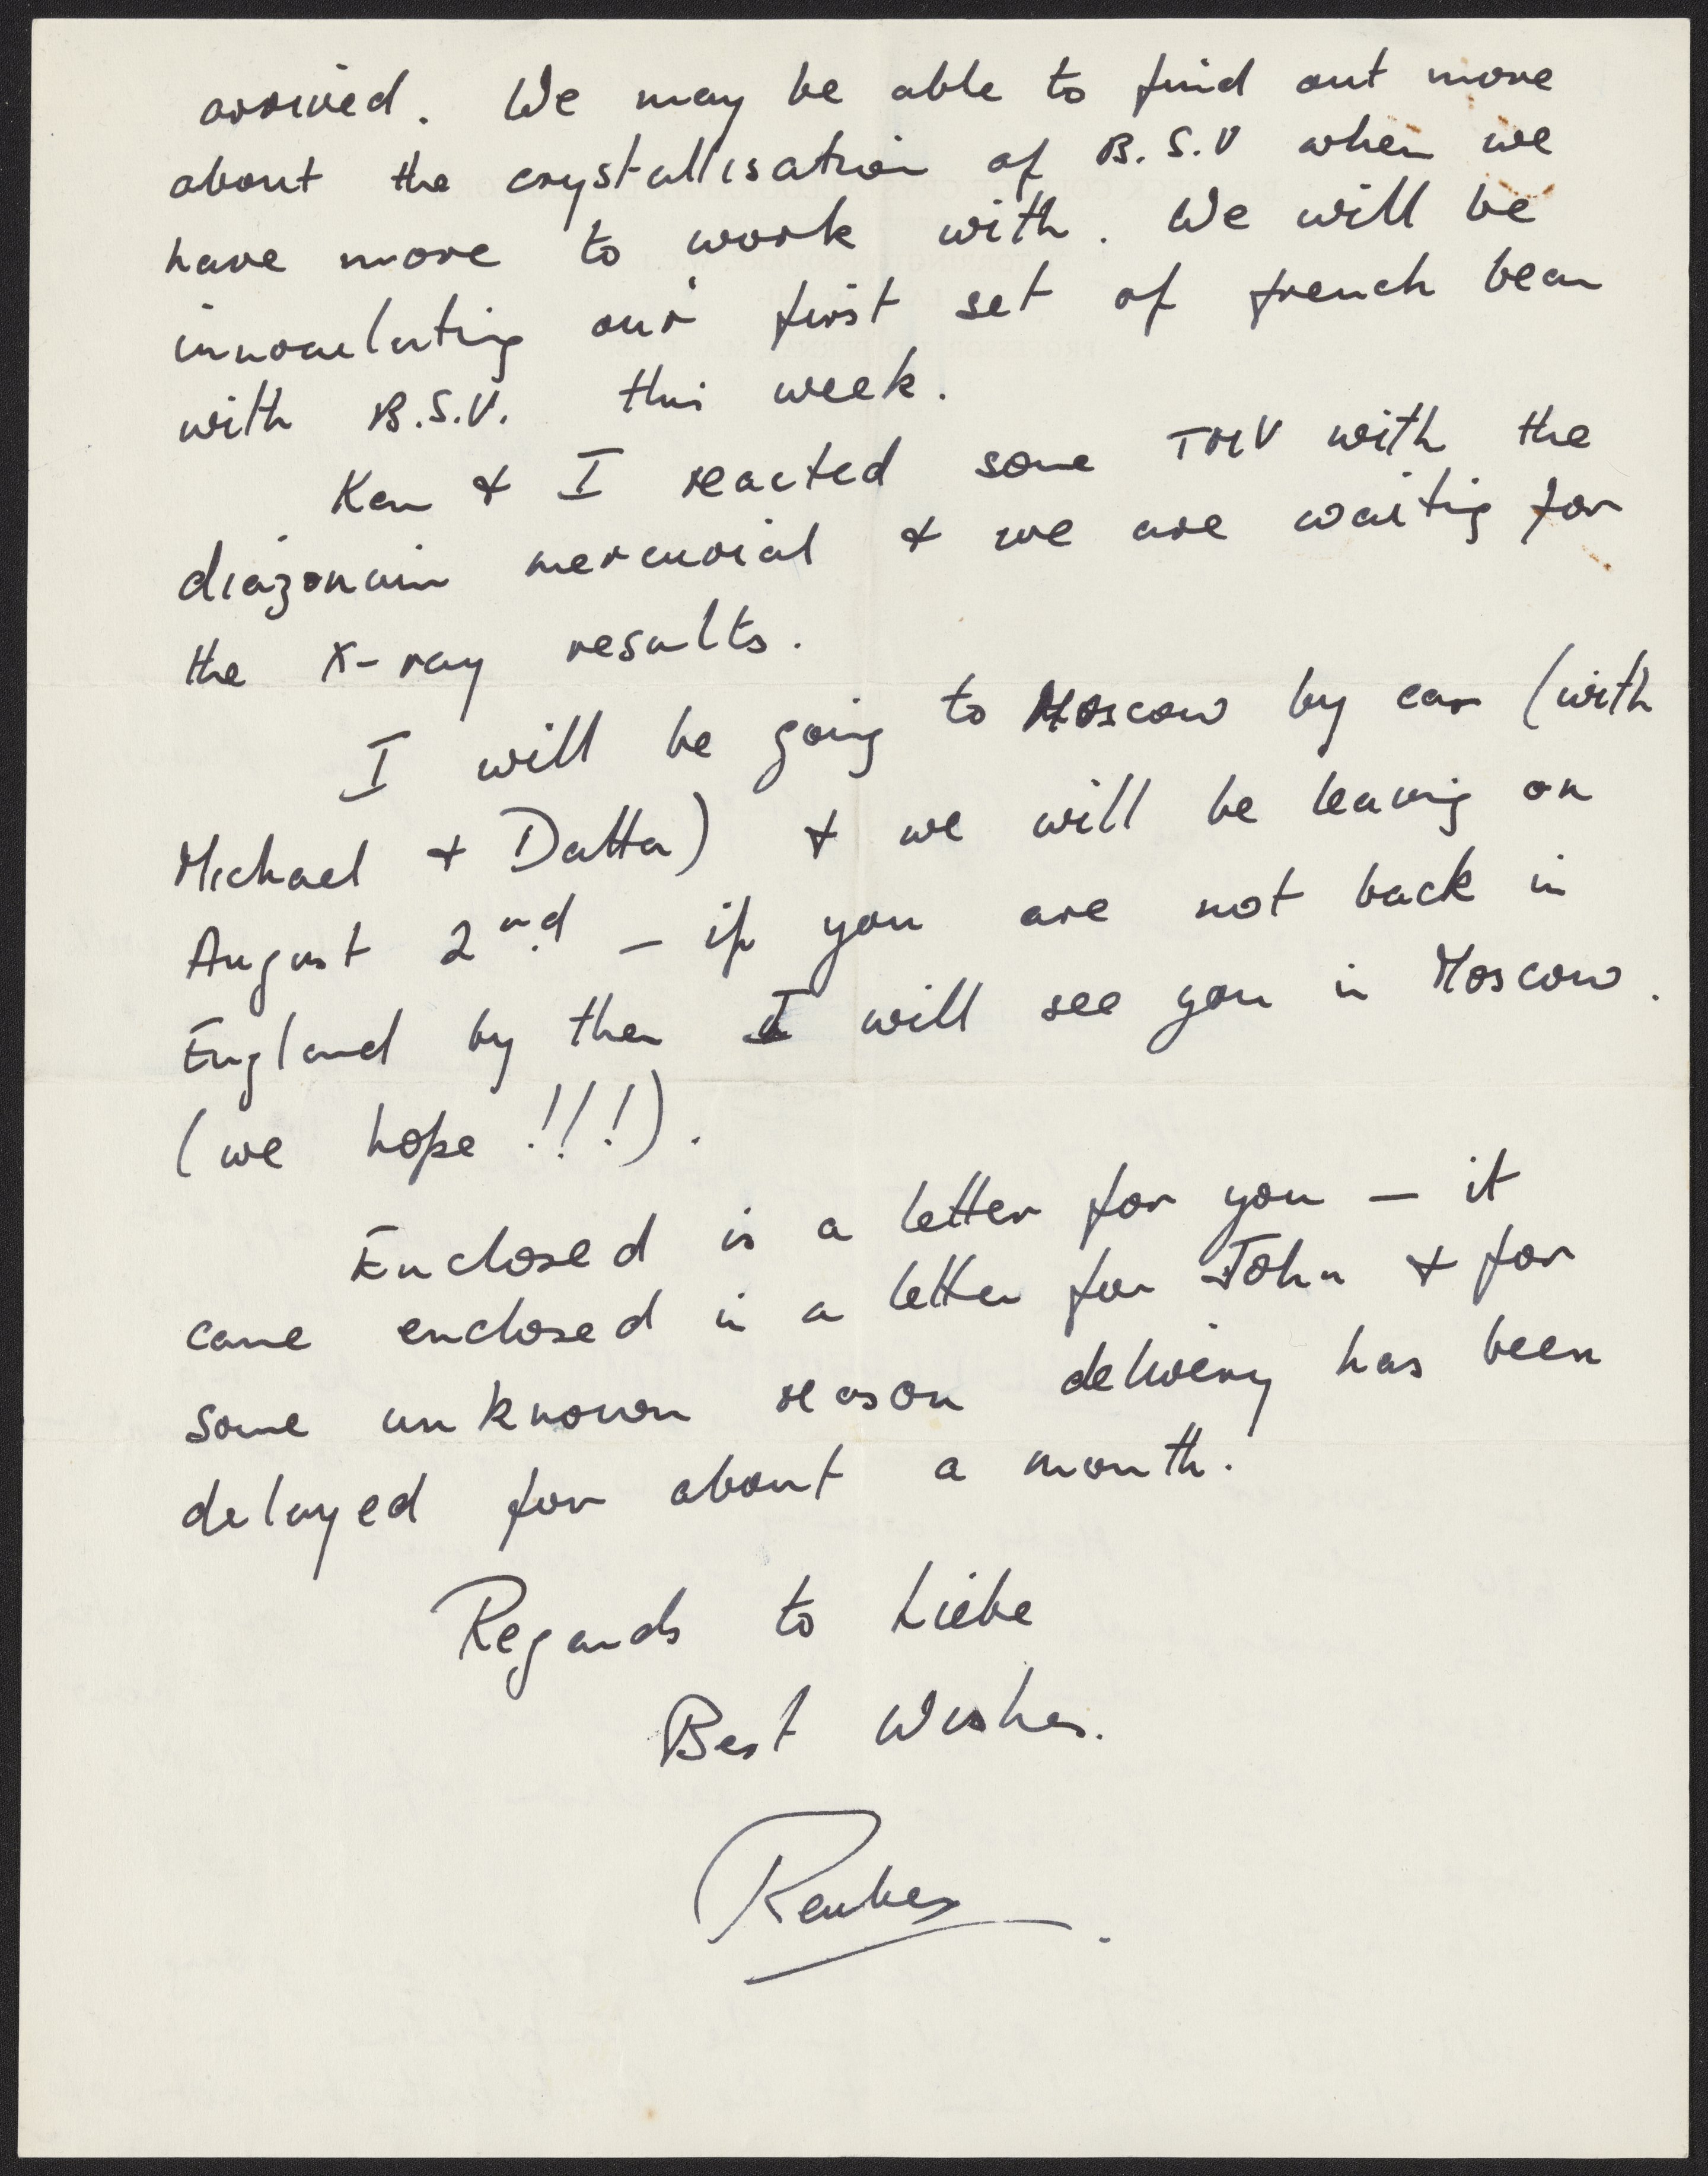 arrived. We may be able to find out more
about the crystallisation of B.S.V when we
have more to work with. We will be
innoculating our first set of french bean
with B.S.V. this week.
Ken & I reacted some TMV with the
diazonium mercurial & we are waiting for
the X-ray results.
I will be going to Moscow by car (with
Michael & Datta) & we will be leaving on
August 2nd – if you are not back in
England by then I will see you in Moscow.
(we hope !!!).
Enclosed is a letter for you – it
came enclosed in a letter for John & for
some unknown reason delivery has been
delayed for about a month.
Regards to Liebe
Best Wishes.
Reuben